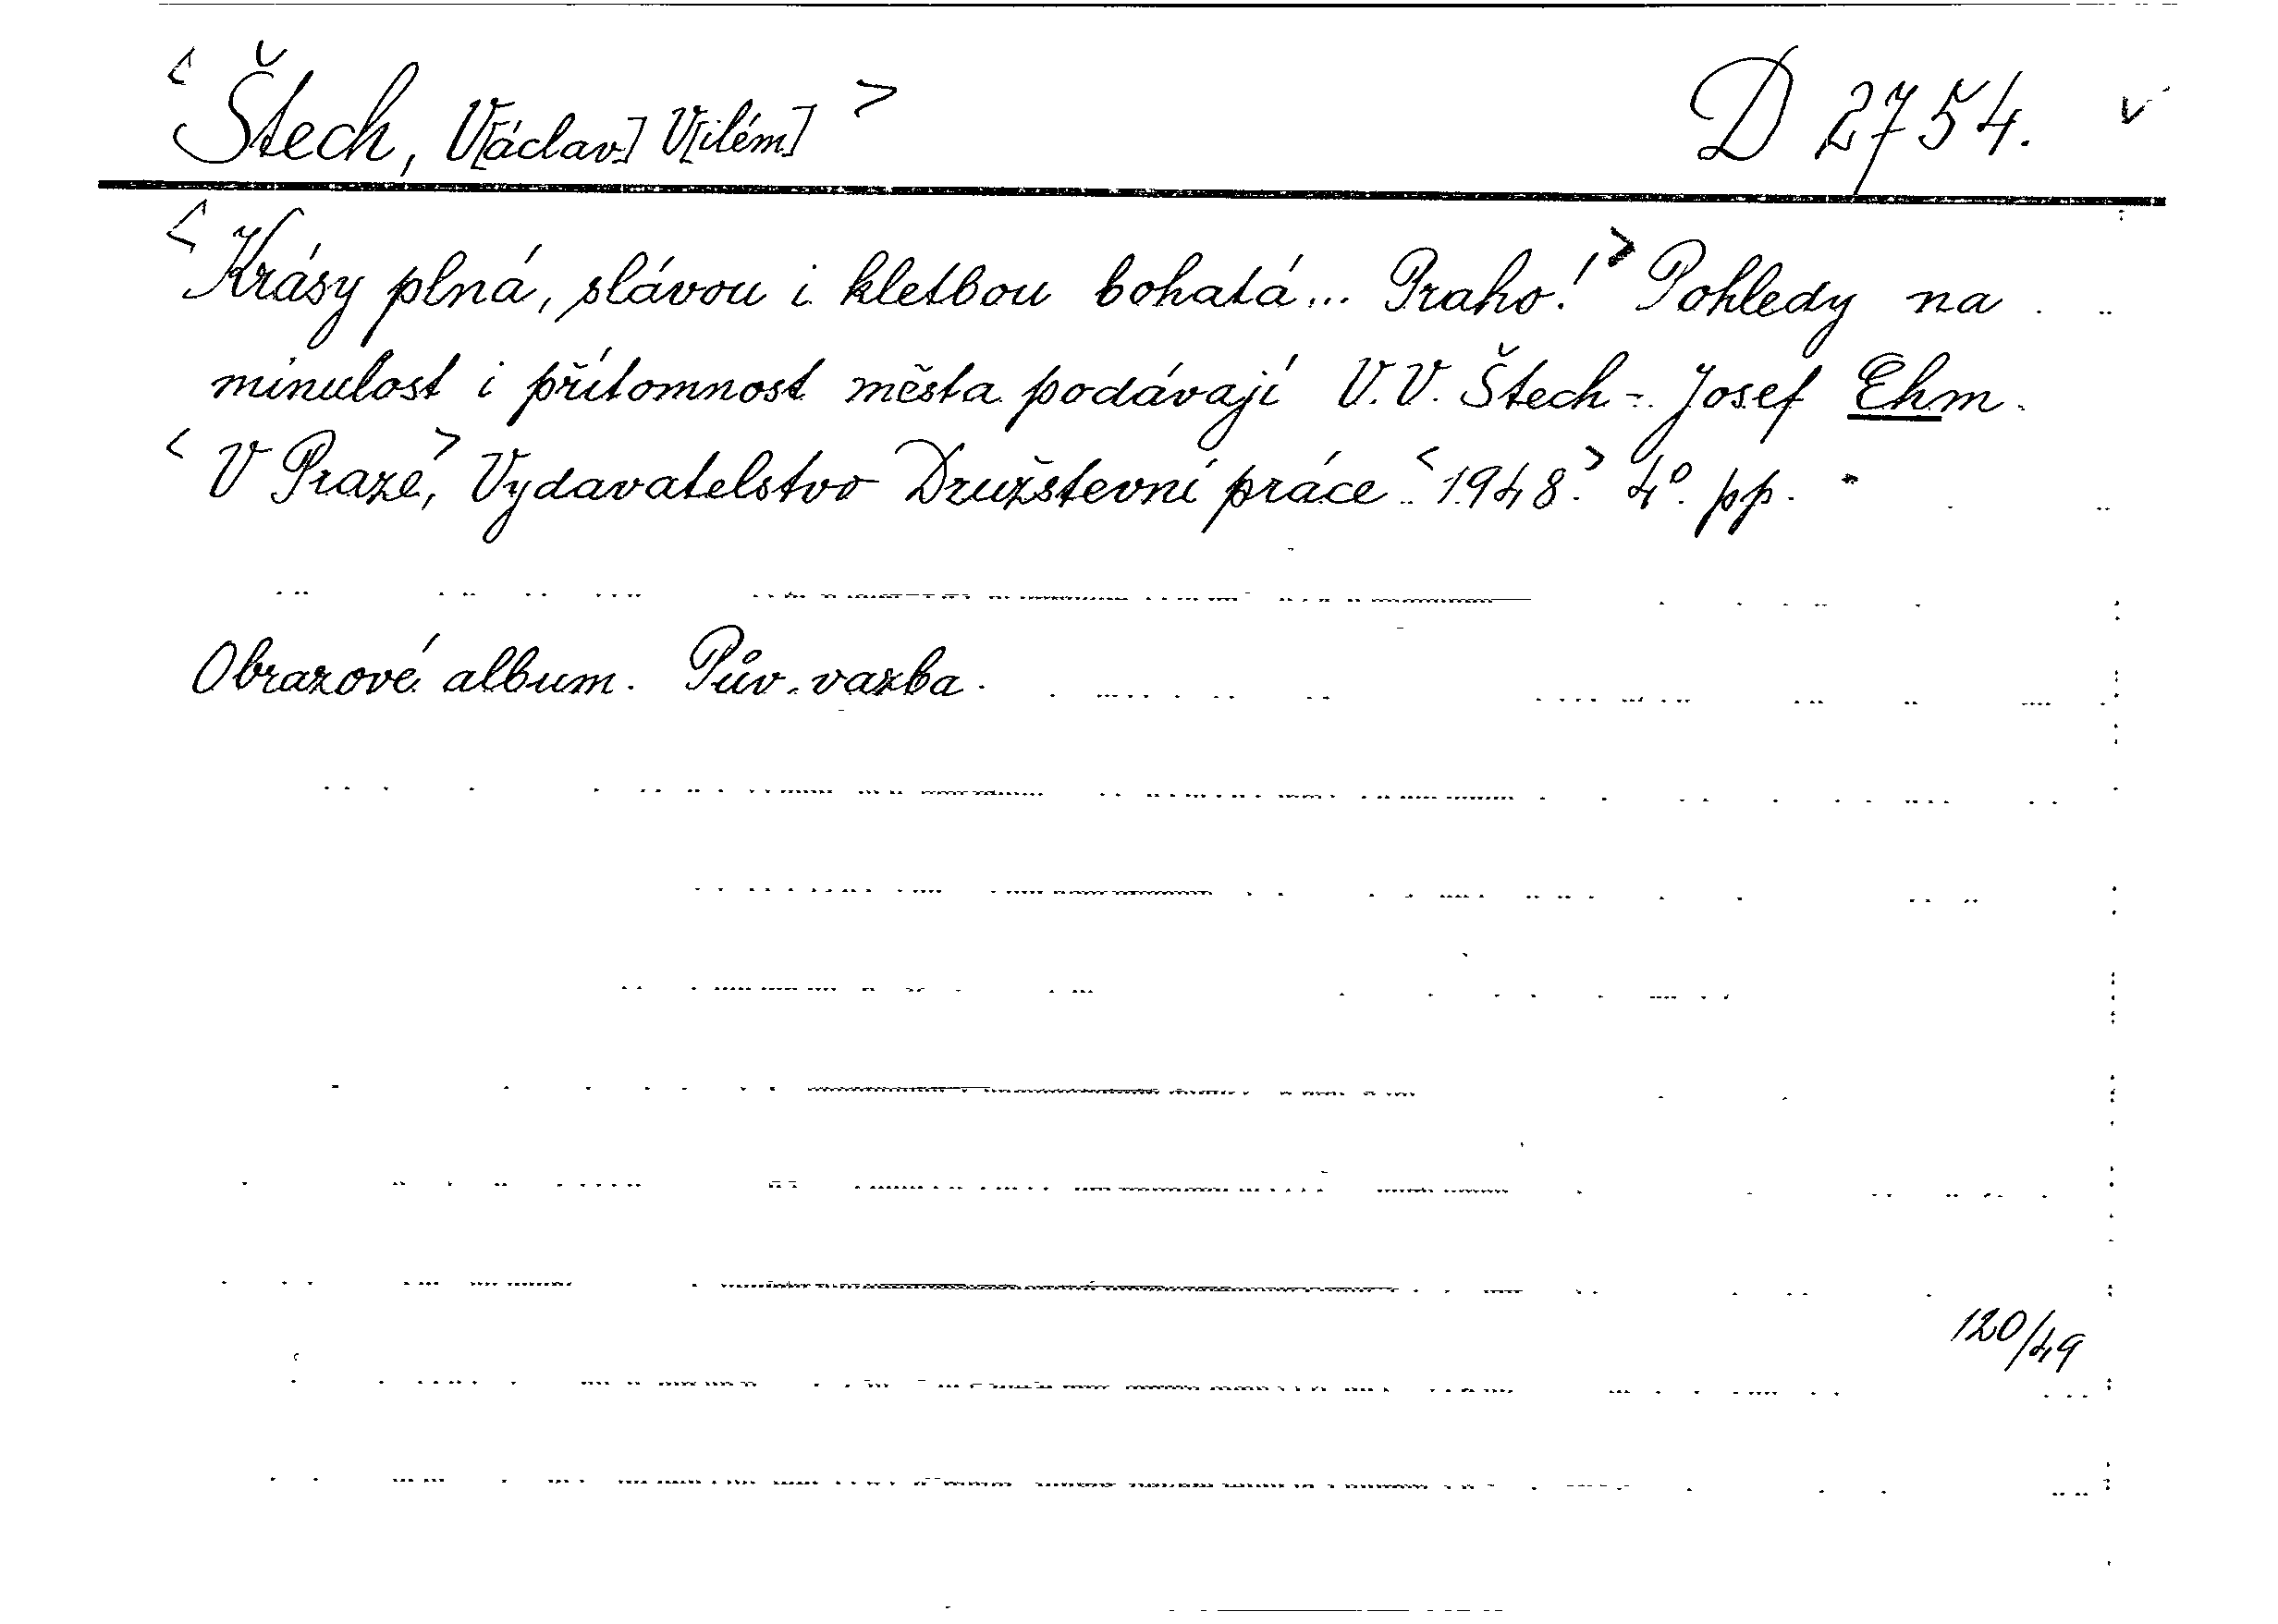 <Štech, V[áclav] V[ilém]> D 2754. v
<Krásy plná, slávou i kletbou bohatá... Praho!> Pohledy na
minulost i přítomnost města podávají V. V. Štech - Josef Ehm.
<V Praze,> Vydavatelstvo Družstevní práce <1948.> 4°. pp.
Obrazové album. Pův. vazba.
120/49